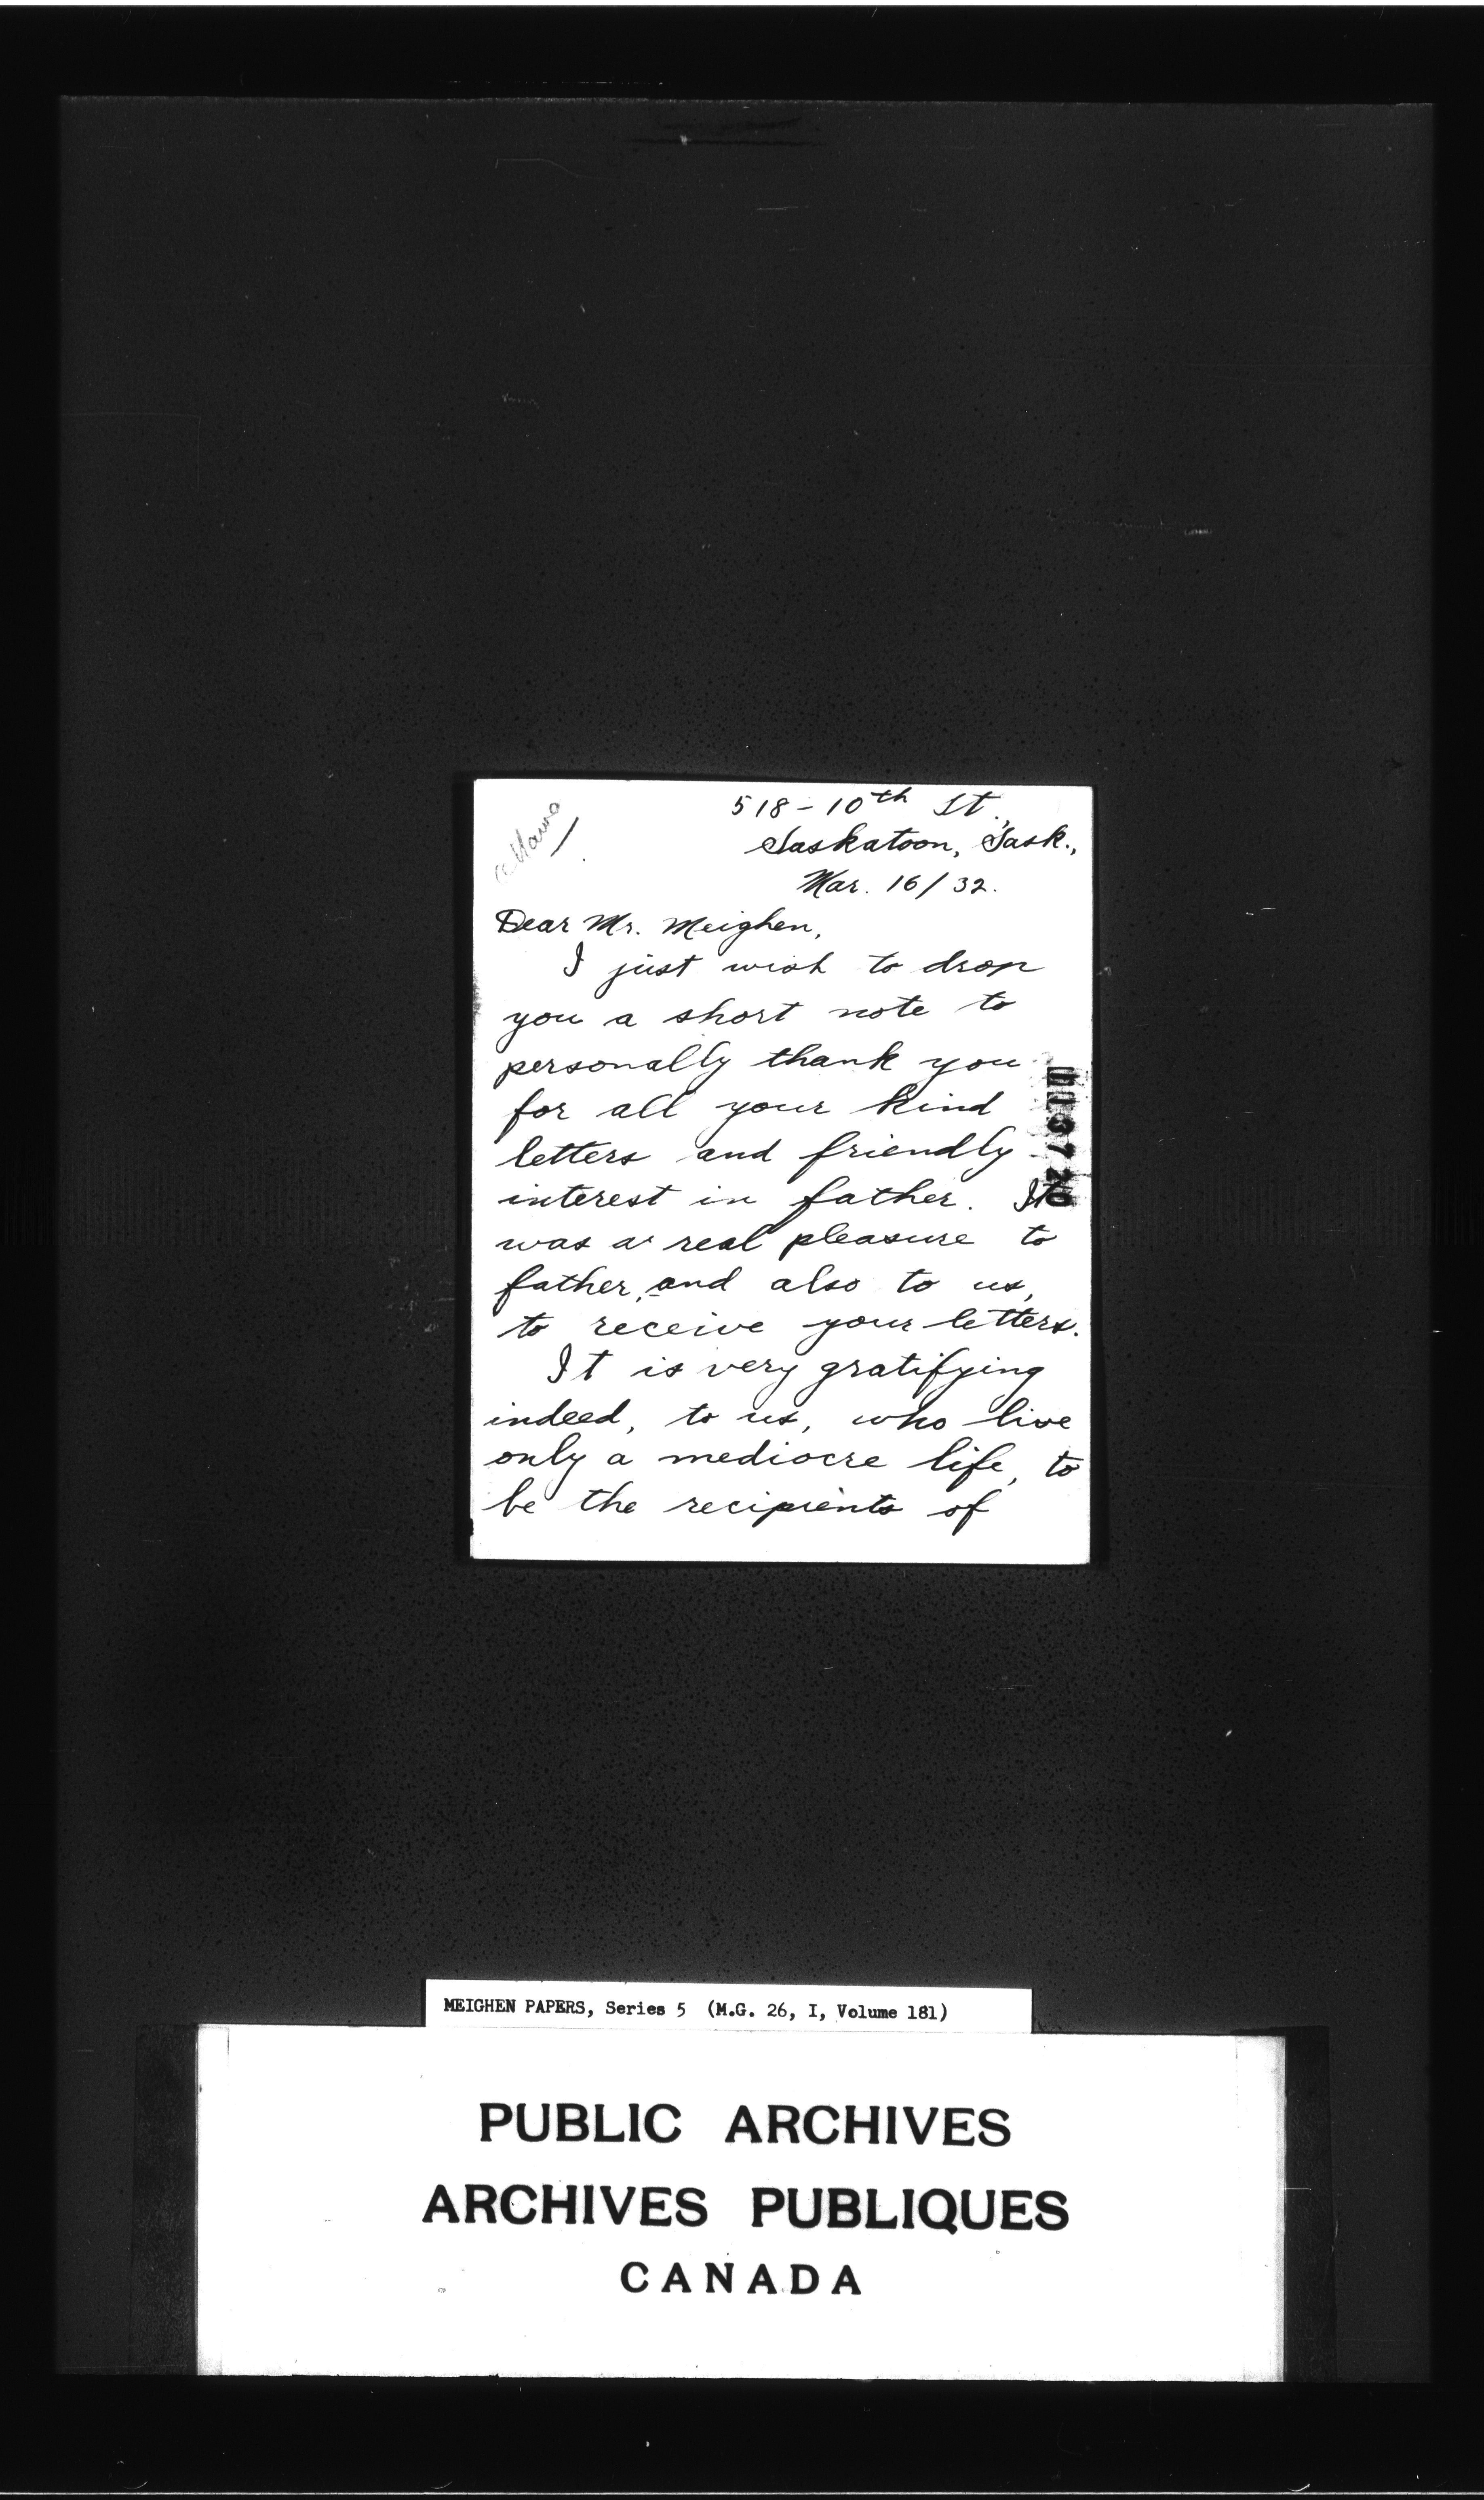 Ottawa
518-10th St.,
Saskatoon, Sask.,
Mar. 16/32.
Dear Mr. Meighen,
I just wish to drop
you a short note to
personally thank you
for all your kind
letters and friendly
interest in father. It
was a real pleasure to
father, and also to us,
to receive your letters.
It is very gratifying
indeed, to us, who live
only a mediocre life, to
be the recipients of
MEIGHEN PAPERS, Series 5 (M.G. 26, I, Volume 181)
PUBLIC ARCHIVES
ARCHIVES PUBLIQUES
CANADA